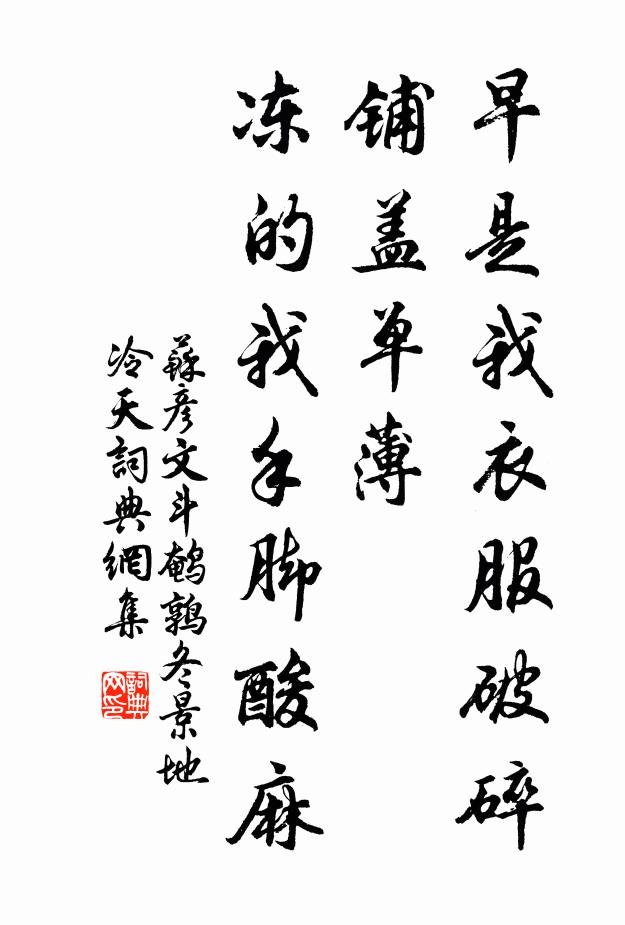 早是我衣服破碎
铺盖单薄
冻的我手脚酸麻
蘇彦文斗鹌鹑冬景地
冷天詞典網集
詞典网印